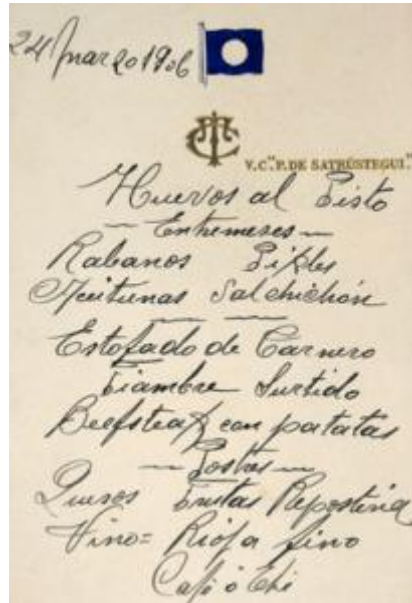 24 Marzo 1906
V.C. "P. DE SATRÚSTEGUI."
Huevos al Pisto
Entremeses
Rabanos Pikles
Aceitunas Salchichón
Estofado de Carnero
Fiambre Surtido
Beefsteak con patatas
Postres
Quesos Frutas Reposteria
Vino = Rioja fino
Café ó Thé